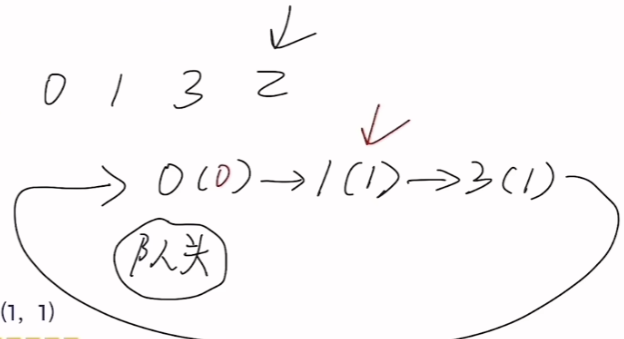 0 1 3 2
0(0)→1(1)→3(1)
队头
(1, 1)